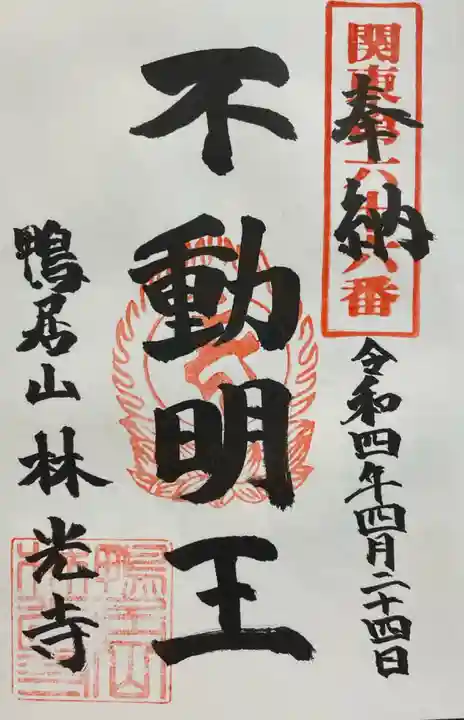 関東第六十八番
奉納
令和四年四月二十四日
不動明王
鴨居山林光寺